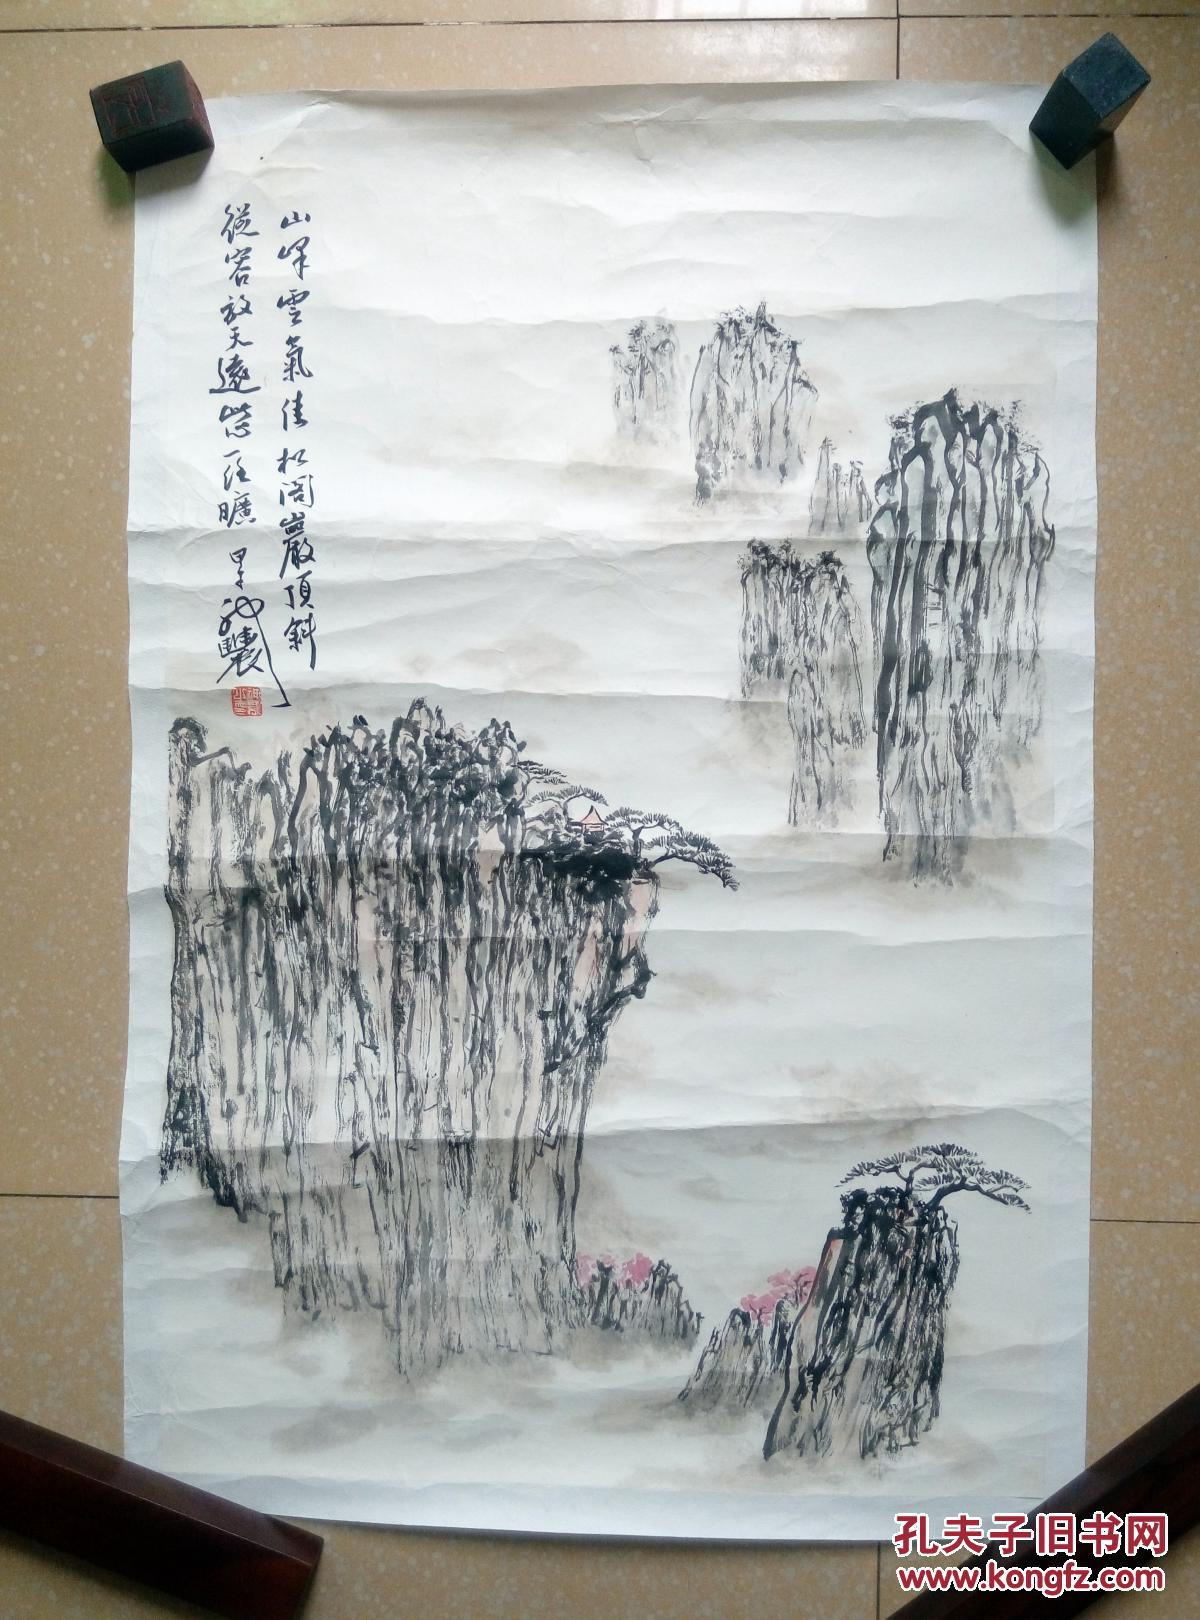 山峰雲氣佳松閣巖頂斜
從容放天遠悠任曠
孔夫子旧书网
www.kongfz.com